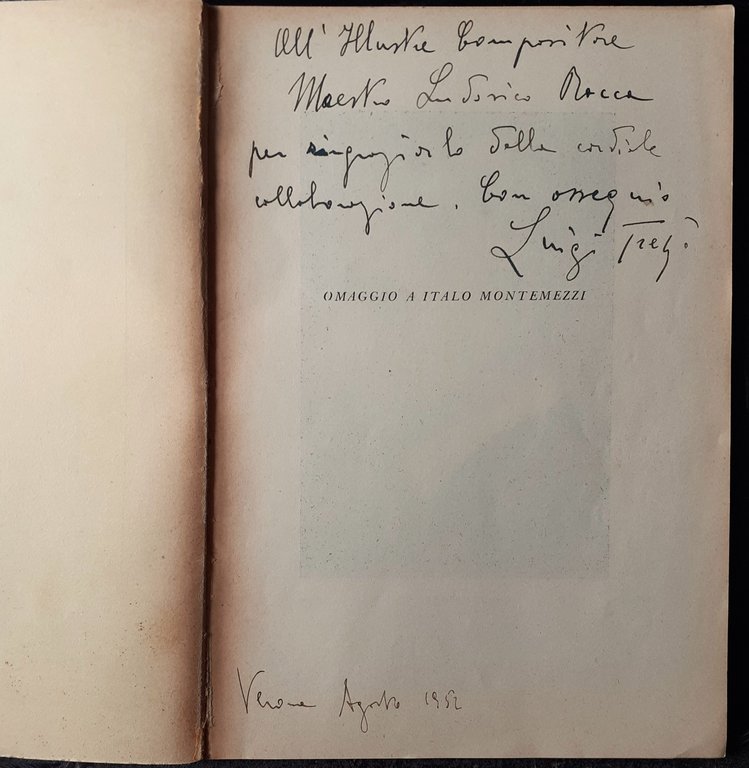 All' Illustre Compositore
Maestro Ludovico Rocca
per ringraziarlo della cordiale
collaborazione. Con ossequio
Luigi Tretti
OMAGGIO A ITALO MONTEMEZZI
Verona Agosto 1952